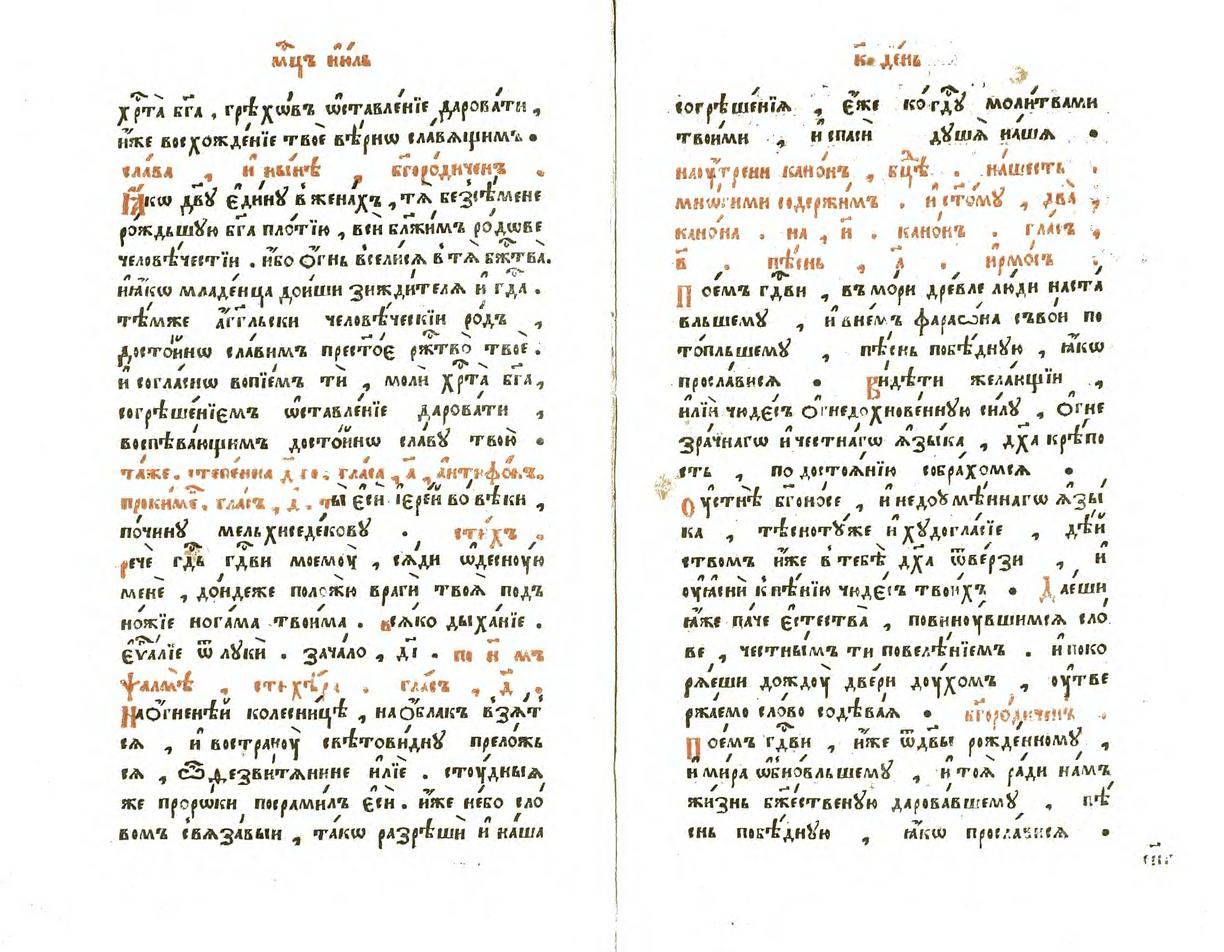 мц҃ъ ию́ль
хр҃та̀ бг҃а , грѣхо́въ ѡ҆ставле́нїе дарова́ти ,
и҆́же восхожде́нїе твоѐ вѣ́рнѡ сла́вѧщимъ .
сла́ва , и҆ ны́нѣ , бг҃оро́диченъ .
Ꙗ҆́кѡ дв҃ꙋ є҆ди́нꙋ в жена́хъ , тѧ̀ без̾сѣ́мене
рожда́шꙋю бг҃а пло́тїю , вси̑ бл҃жи́мъ ро́дове
человѣ́честїи . и҆́бо ѻ҆́гнь всели́сѧ в тѧ̀ бж҃тва̀.
и҆ ꙗ҆́кѡ младе́нца дои́ши зижди́телѧ и҆ гд҃а .
тѣ́мже а҆́гг҃льски человѣ́ческїи ро́дъ ,
досто́йнѡ сла́вимъ прест҃о́е рж҃тво̀ твоѐ .
и҆ согла́снѡ вопїе́мъ тѝ , молѝ хр҃та̀ бг҃а ,
согрѣше́нїемъ ѡ҆ставле́нїе дарова́ти ,
воспѣва́ющимъ досто́йнѡ сла́вꙋ твою̀ .
та́же . степе́нна д҃ го . гла́са , а҃ , а҆нтифѡ́нъ.
проки́ме . гла́съ , д҃ . ты̀ є҆сѝ і҆ере́й во вѣ́ки ,
по чи́нꙋ мельхиседе́кову . сти́хъ .
речѐ гд҃ь гд҃ви моемоу̀ , сѧ́ди ѡ҆деснꙋ́ю
менѐ , до́ндеже положю̀ врагѝ твоѧ̀ под̾
но́жїе нога́ма твои́ма . всѧ́ко дыха́нїе .
є҆ѵ҃а́лїе ѿ лꙋкѝ . зача́ло , д҃і . по н҃ мъ
ѱалмѣ̀ , стихѣ́ра . гла́съ , д҃ .
На ѻ҆́гненѣй колесни́цѣ , на ѻ҆́блакъ взѧ́т
сѧ , и҆ в странꙋ̀ свѣтови́днꙋ прело́жь
сѧ , ѽ ѳезвитѧ́нине и҆лїѐ . стꙋ́дныѧ
же проро́ки посрами́лъ є҆сѝ . и҆́же не́бо сло́
вомъ свѧза́выи , та́кѡ разрѣшѝ и҆ на́ша
к҃ де́нь
согрѣше́нїѧ , є҆́же ко гд҃ꙋ моли́твами
твои́ми , и҆ спасѝ дꙋшѧ̀ на́шѧ .
на оу҆́трени кано́нъ , бц҃ѣ . на ше́сть .
мно́гими содержи́мъ . и҆ ст҃о́мꙋ , два̀ ,
кано́на . на , и҃ . кано́нъ . гла́съ ,
в҃ . пѣ́снь , а҃ . и҆рмо́съ .
Пое́мъ гд҃ви , въ мо́ри дре́вле лю́ди наста́
вльшемꙋ , и҆ в не́мъ фараѡ́на съ во́и по
то́пльшемꙋ , пѣ́снь побѣ́днꙋю , ꙗ҆́кѡ
просла́висѧ . Ви́дѣти жела́ющїи ,
и҆лїѝ чюде́съ ѻ҆гнедохнове́ннꙋю си́лꙋ , ѻ҆гне
зра́чнагѡ и҆ че́стнагѡ ѧ҆зы́ка , дх҃а крѣ́по
сть , по достоѧ́нїю собра́хомсѧ .
Оу҆стнѣ̀ бг҃оно́се , и҆ недоꙋмѣ́ннагѡ ѧ҆зы́
ка , тѣснотꙋ́же и҆ хꙋдогла́сїе , дѣ́й
ствомъ и҆́же в тебѣ̀ дх҃а ѿве́рзи , и҆
оу҆ѧснѝ к пѣ́нїю чюде́съ твои́хъ . Дае́ши
ꙗ҆́же па́че є҆стества̀ , повинꙋ́вшимсѧ сло́
ве , че́стнымъ ти повелѣ́нїемъ . и҆ поко
рѧ́еши дождоу̀ две́ри доу́хомъ , оу҆тве
ржа́емо сло́во содѣ́ваѧ . бг҃оро́диченъ .
Пое́мъ гд҃ви , и҆́же ѿ дв҃ы рожде́нномꙋ ,
и҆ ми́ра ѡ҆бно́вльшемꙋ , и҆ тоѧ̀ ра́ди на́мъ
жи́знь бж҃е́ственꙋю дарова́вшемꙋ , пѣ́
снь побѣ́днꙋю , ꙗ҆́кѡ просла́висѧ .